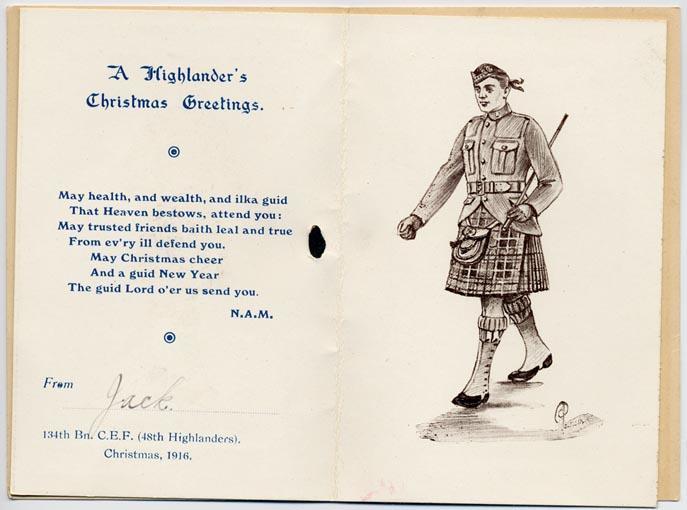 A Highlander's
Christmas Greetings.
May health, and wealth, and ilka guid
That Heaven bestows, attend you:
May trusted friends baith leal and true
From ev'ry ill defend you.
May Christmas cheer
And a guid New Year
The guid Lord o'er us send you.
N.A.M.
From Jack.
134th Bn. C.E.F. (48th Highlanders).
Christmas, 1916.